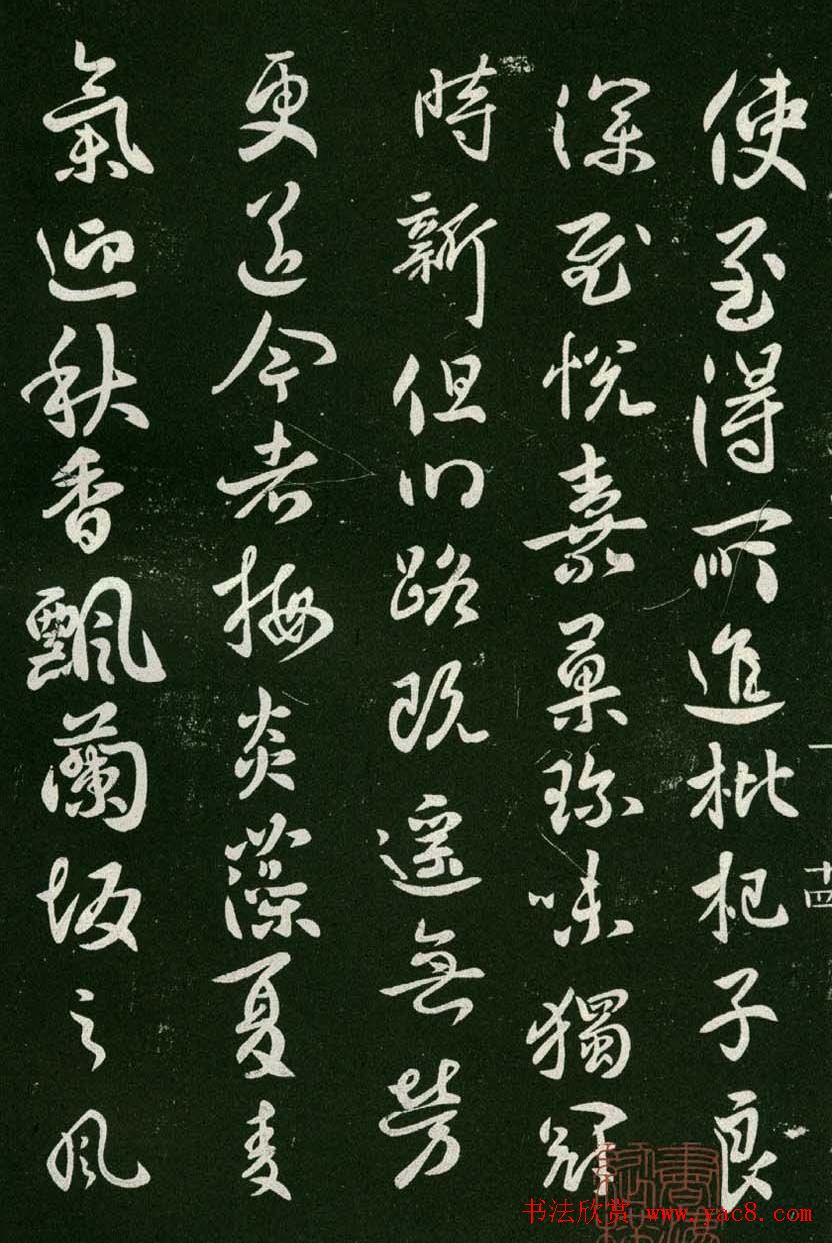 使至得所進枇杷子良
深慰悅嘉菓珍味獨冠
時新但川路既遙無勞
更送今者梅炎藻夏麥
氣迎秋香飄蘭坂之風
十四
书法欣赏 www.yac8.com